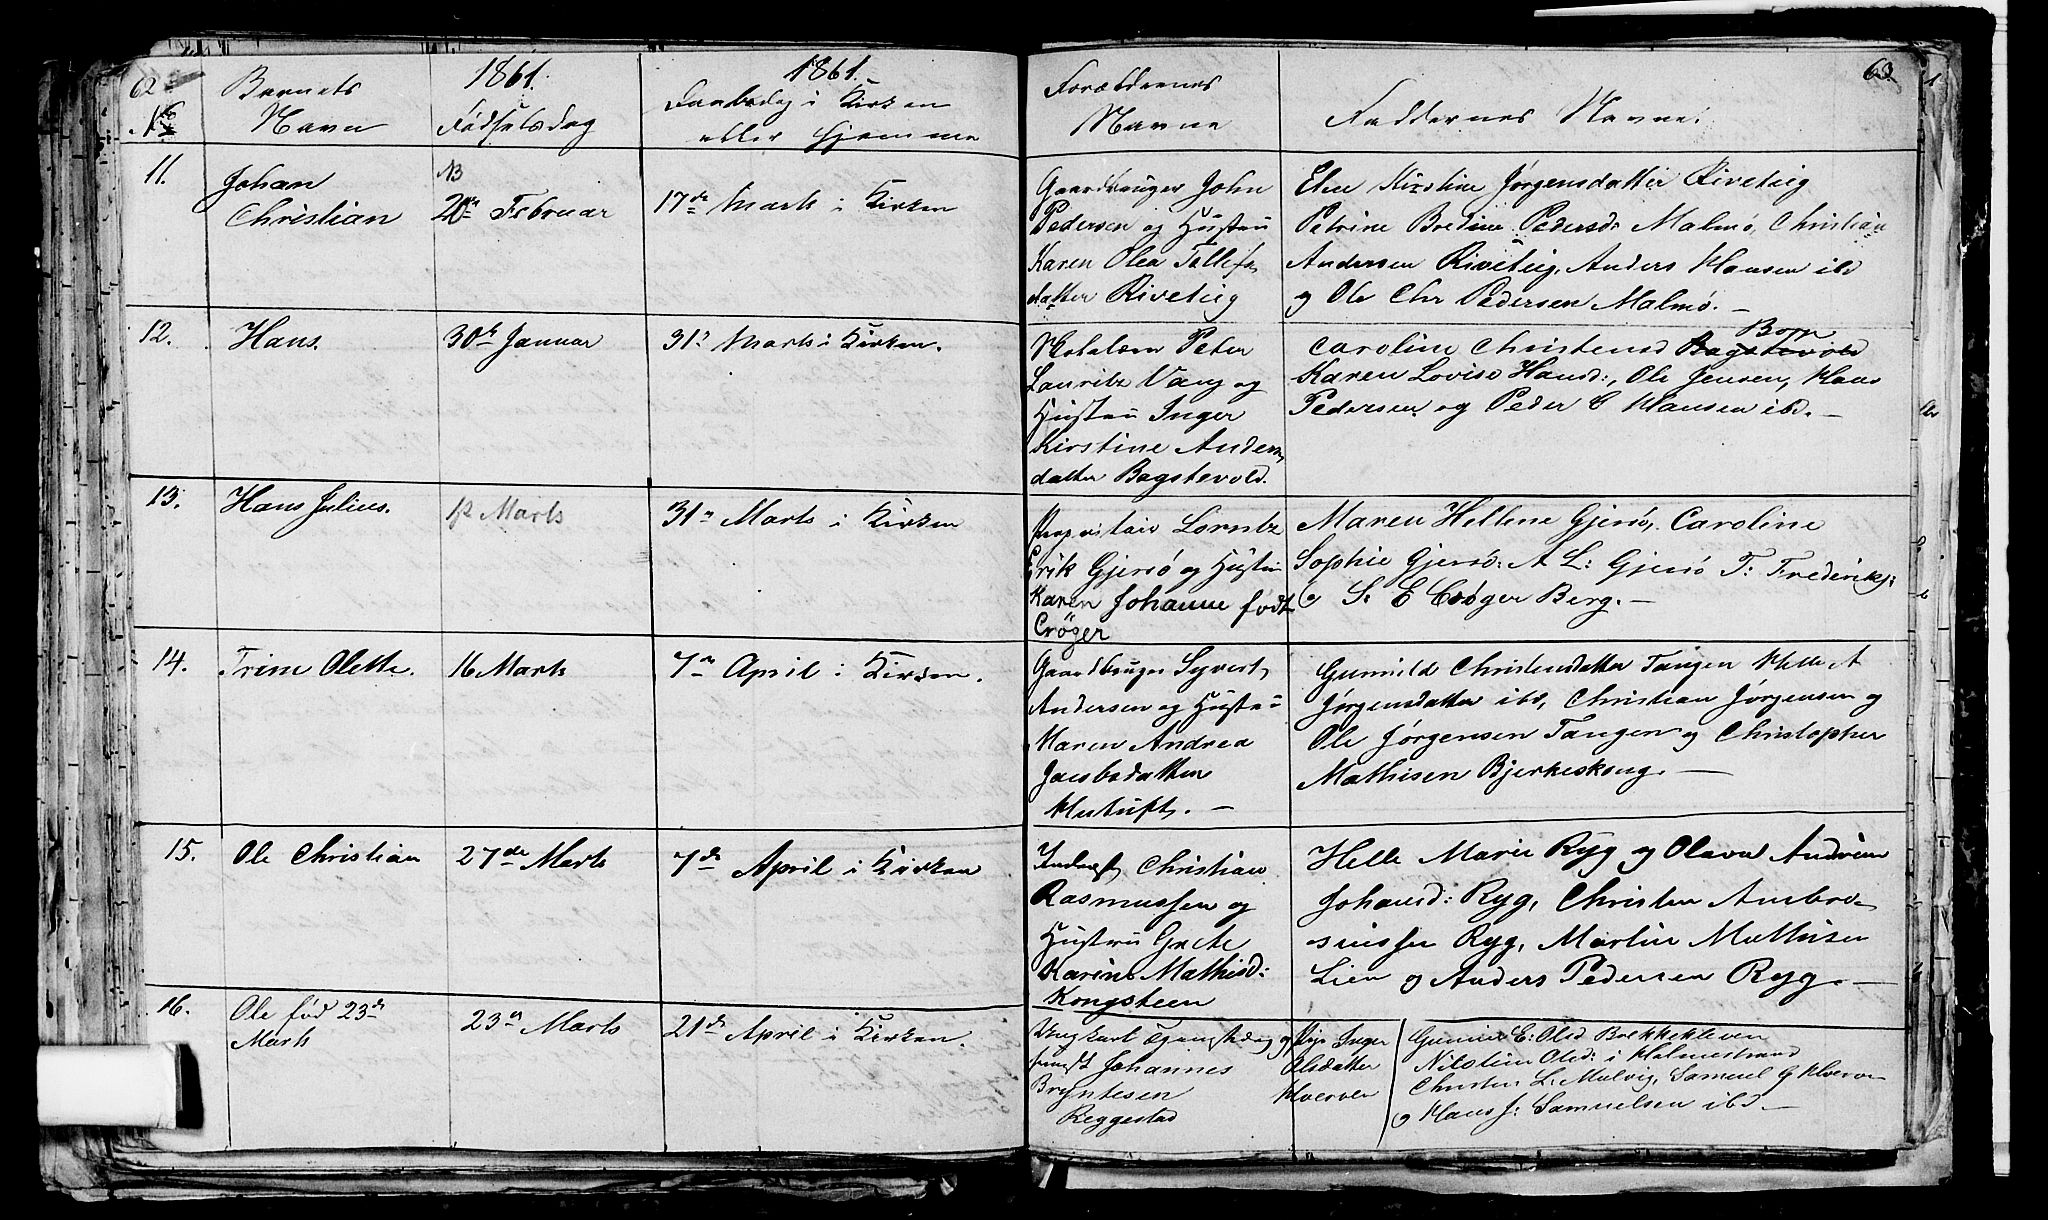 62
1861.
1861.
63.
No
Barnets
Navn
Födselsdag
Daabsdag i Kirken
eller hjemme
Forældrenes
Navne
Faddernes Navne:
11.
Johan
Christian
NB
20de Februar
17de Marts i Kirken
Gaardbruger John
Pedersen og Hustru
Karen Olea Tollefs
datter Rivetug
Elen Kirstine Jørgensdatter Rivetug
Petrine Bredine Pedersd: Malmö, Christian
Andersen Rivetug, Anders Hansen ibd
og Ole Chr Pedersen Malmö. —
12.
Hans.
30de Januar
31' Marts i Kirken.
Peter
Lauritz Vang og
Hustru Inger
Kirstine Anders
datter Bagstevold.
Born
Caroline Christensd Bagstevold
Karen Lovise Hansd:, Ole Jensen, Hans
Pedersen og Peder C Hansen ibd. —
13.
Hans Julius.
12 Marts
31te Marts i Kirken
Proprietair Lorntz
Erik Gjersö og Hustru
Karen Johanne födt
Cröger
Maren Hellene Gjersö, Caroline
Sophie Gjersö: A L: Gjersö T: Frederiks:
S. E Cröger Berg. —
14.
Trine Olette.
16 Marts
7de April i Kirken.
Gaardbruger Syvert
Andersen og Hustru
Maren Andrea
Jacobsdatter
Gunnild Christensdatter Tangen Helle A
Jørgensdatter ibd, Christian Jørgensen og
Ole Jørgensen Tangen og Christopher
Mathisen Bjerkeskoug. —
15.
Ole Christian
27de Marts
7de April i Kirken
Inderst Christian
Rasmussen og
Hustru Grete
Karine Mathisd:
Kongsteen
Helle Marie Ryg og Olava Andrine
Johansd: Ryg, Christen Ambro-
siussen Ryg, Martin Mathisen
Lien og Anders Pedersen Ryg. —
16.
Ole föd 23de
Marts
23de Marts
21de April i Kirken.
Ungkarl og
Johannes
Bryntesen
Reggestad
Pige Inger
Olsdatter
Klverver
Gunnil E: Olsd Bækkekleven
Nilstine Olsd: i Holmestrand
Christen L. Mulvig, Samuel G
og Hans J: Samuelsen ibd —